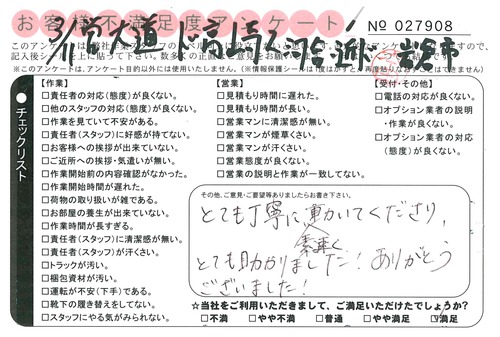 お客様不満足度アンケート
№ 027908
介営大道
岩見市
記入後シール
※このアンケートは、アンケート目的以外には使用いたしません。(※情報保護シールは1度はがすと、再度貼りなおすことはできません)
チェックリスト
【作業】
□責任者の対応(態度)が良くない。
□他のスタッフの対応(態度)が良くない。
□作業を見ていて不安がある。
□責任者(スタッフ)に好感が持てない。
□お客様への挨拶が出来ていない。
□ご近所への挨拶・気遣いが無い。
□作業開始前の内容確認がなかった。
□作業開始時間が遅れた。
□荷物の取り扱いが雑である。
□お部屋の養生が出来ていない。
□作業時間が長すぎる。
□責任者(スタッフ)に清潔感が無い。
□責任者(スタッフ)が汗くさい。
□トラックが汚い。
□梱包資材が汚い。
□運転が不安(下手)である。
□靴下の履き替えをしてない。
□スタッフにやる気がみられない。
【営業】
□見積もり時間に遅れた。
□見積もり時間が長い。
□営業マンに清潔感が無い。
□営業マンが煙草くさい。
□営業マンが汗くさい。
□営業態度が良くない。
□営業の説明と作業が一致してない。
【受付・その他】
□電話の対応が良くない。
□オプション業者の説明
・作業が良くない。
□オプション業者の対応
(態度)が良くない。
その他、ご意見・ご要望等ありましたらお書き下さい。
とても丁寧に動いてくださり、
素早く
とても助かりました！ありがとう
ございました！
★当社をご利用いただきまして、ご満足いただけたでしょうか？
□不満 □やや不満 □普通 □やや満足 ☑満足